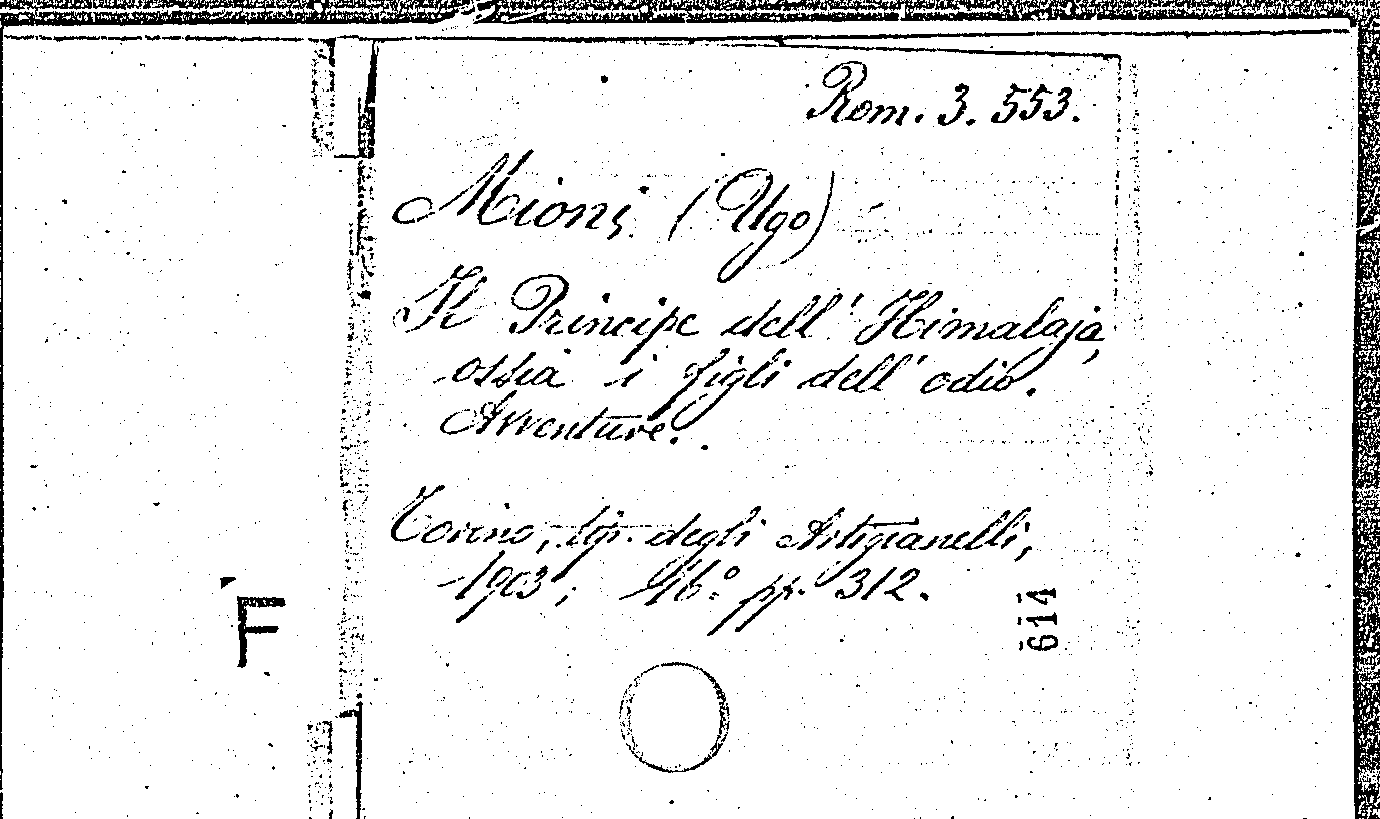 Rom. 3. 553.
Mioni (Ugo)
Il Principe dell' Himalaja,
ossia i figli dell' odio.
Avventure.
Torino, tip. degli Artigianelli,
1903; 16.° pp. 312.
F
614